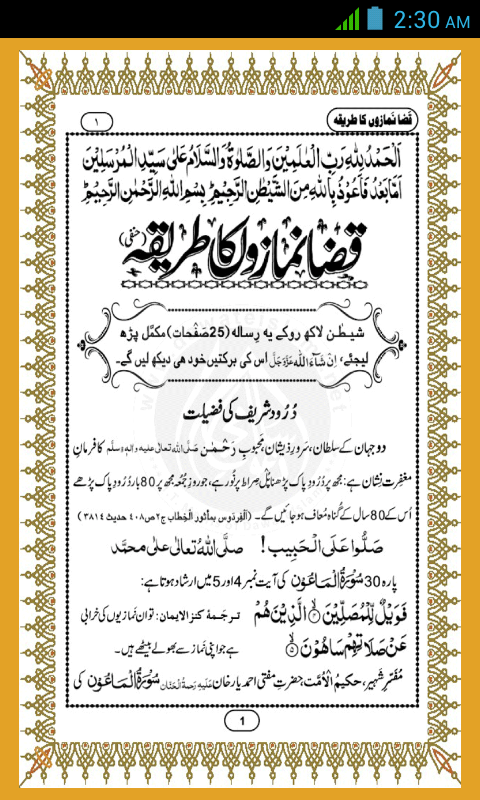 2:30 AM
قضا نمازوں کا طریقہ
١
اَلْحَمْدُ لِلّٰهِ رَبِّ الْعٰلَمِيْنَ وَالصَّلٰوةُ وَالسَّلَامُ عَلٰى سَيِّدِ الْمُرْسَلِيْنَ
اَمَّا بَعْدُ فَاَعُوْذُ بِاللّٰهِ مِنَ الشَّيْطٰنِ الرَّجِيْمِ ؕ بِسْمِ اللّٰهِ الرَّحْمٰنِ الرَّحِيْمِ ؕ
قضا نمازوں کا طریقہ (حنفی)
شیطٰن لاکھ روکے یہ رِسالہ (25صَفْحات) مکمَّل پڑھ
لیجئے، اِنْ شَآءَ اللّٰہ عَزَّوَجَلَّ اس کی برکتیں خود ہی دیکھ لیں گے۔
دُرُود شریف کی فضیلت
دو جہان کے سلطان، سَرورِ ذیشان، محبوبِ رَحْمٰن صلَّی اللہ تعالٰی علیہ والہٖ وسلَّم کا فرمانِ
مغفرت نِشان ہے: مجھ پر دُرُودِ پاک پڑھنا پُلْ صِراط پر نُور ہے، جو روزِ جُمُعہ مجھ پر 80 بار دُرُودِ پاک پڑھے
اُس کے 80 سال کے گُناہ مُعاف ہو جائیں گے۔ (اَلْفِردَوس بمأثور الخِطاب ج۲ ص۴۰۸ حدیث ۳۸۱۴)
صَلُّوْا عَلَی الْحَبِیْب! صلَّی اللّٰہُ تعالٰی علٰی محمَّد
پارہ 30 سُوْرَۃُ الْمَاعُوْن کی آیت نمبر 4 اور 5 میں ارشاد ہوتا ہے:
فَوَیْلٌ لِّلْمُصَلِّیْنَ ۙ﴿۴﴾ الَّذِیْنَ هُمْ ترجَمۂ کنز الایمان: تو ان نمازیوں کی خرابی
عَنْ صَلَاتِهِمْ سَاهُوْنَ ۙ﴿۵﴾ ہے جو اپنی نَماز سے بھولے بیٹھے ہیں۔
مُفَسِّرِ شَہیر، حکیمُ الْاُمَّت، حضرتِ مفتی احمد یار خان عَلَیْہِ رَحمۃُ الْحَنَّان سُوْرَۃُ الْمَاعُوْن کی
1